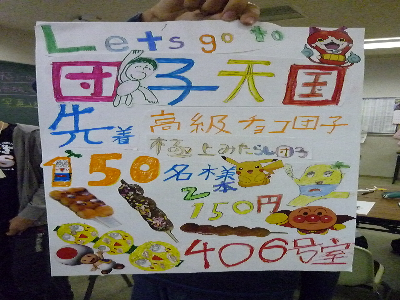 Let's go to
団子天国
先着 高級チョコ団子
極上みたらし団子
150名様
150円
406号室